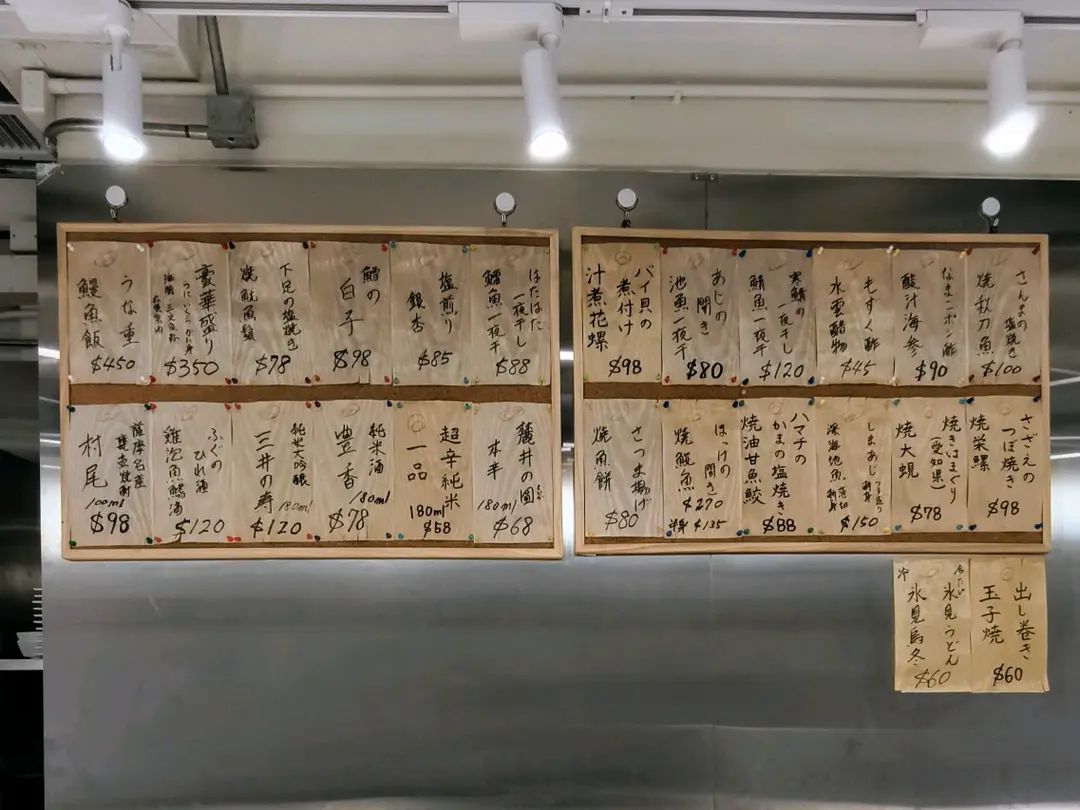 さんまの塩焼き
焼秋刀魚
$100
なまこポン酢
酸汁海参
$90
もずく酢
水雲醋物
$45
寒鯖の一夜干し
鯖魚一夜干
$120
あじの開き
池魚一夜干
$80
バイ貝の煮付け
汁煮花螺
$98
さざえのつぼ焼き
焼栄螺
$98
焼きはまぐり
(愛知県)
焼大蜆
$78
しまあじ
深海池魚
$150
ハマチのかまの塩焼き
焼油甘魚鮫
$88
ほっけの開き
焼鯱魚
$270
半身 $135
さつま揚げ
焼魚餅
$80
出し巻き
玉子焼
$60
冷たい
氷見うどん
冷
氷見烏冬
$60
はたはた一夜干し
鱩魚一夜干
$88
塩煎り
銀杏
$85
鱈の
白子
$98
下足の塩焼き
焼魷魚鬚
$78
豪華盛り
$350
うな重
鰻魚飯
$450
麓井の圓
本辛
180ml
$68
超辛純米
一品
180ml
$58
純米酒
豊香
180ml
$78
純米大吟醸
三井の寿
180ml
$120
ふぐのひれ酒
雞泡魚鰭酒
$120
薩摩名産
村尾
100ml
$98